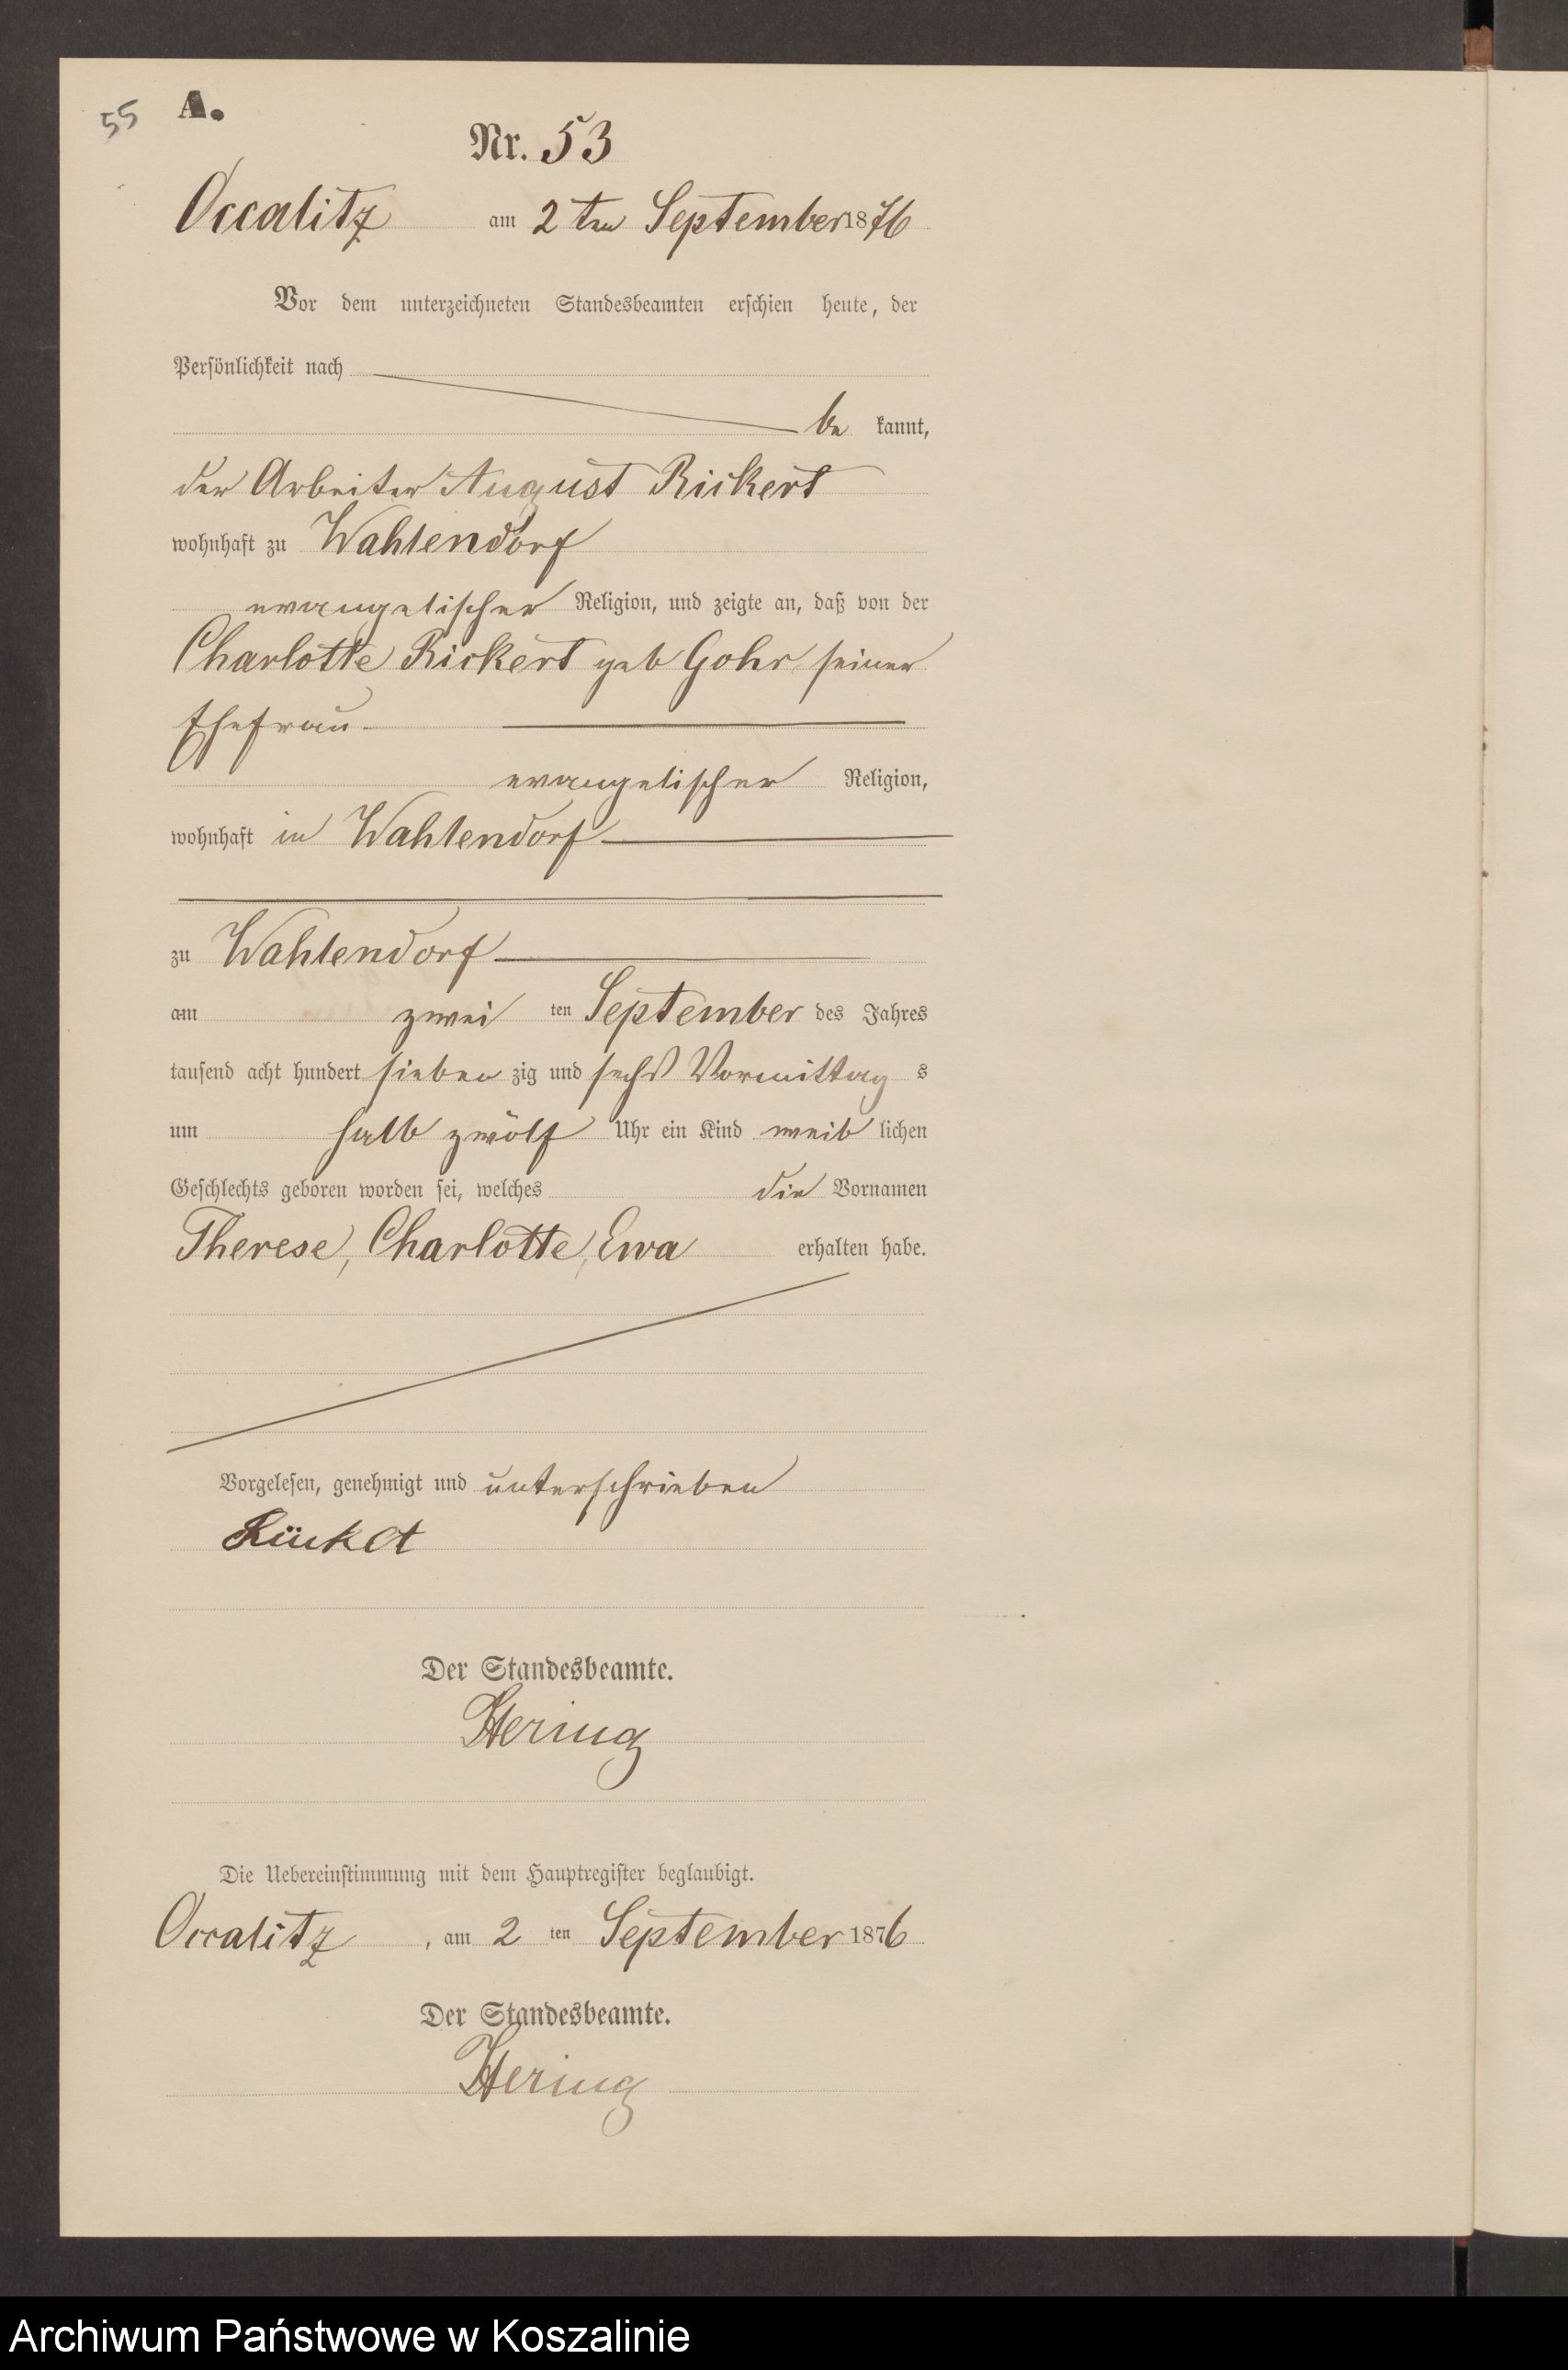 55 A.
Nr. 53
Occalitz am 2ten September 1876
Vor dem unterzeichneten Standesbeamten erschien heute, der
Persönlichkeit nach
be kannt,
der Arbeiter August Rickert
wohnhaft zu Wahlendorf
evangelischer Religion, und zeigte an, daß von der
Charlotte Rickert geb Gohr seiner
Ehefrau
evangelischer Religion,
wohnhaft in Wahlendorf
zu Wahlendorf
am zwei ten September des Jahres
tausend acht hundert sieben zig und sechs Vormittag s
um halb zwölf Uhr ein Kind weib lichen
Geschlechts geboren worden sei, welches die Vornamen
Therese, Charlotte, Ewa erhalten habe.
Vorgelesen, genehmigt und unterschrieben
Der Standesbeamte.
Hering
Die Uebereinstimmung mit dem Hauptregister beglaubigt.
Occalitz, am 2 ten September 1876
Der Standesbeamte.
Hering
Archiwum Państwowe w Koszalinie